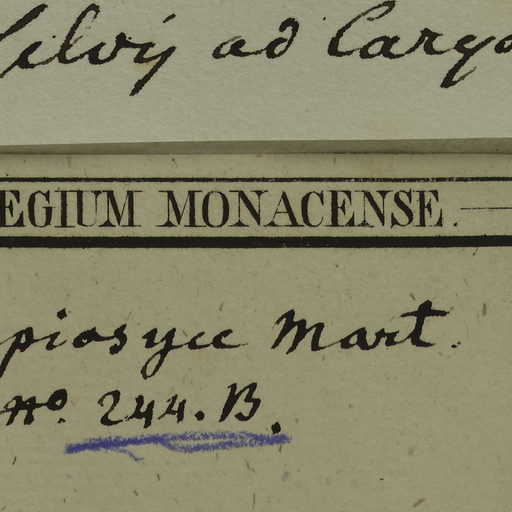 Silvis ad Caryo
EGIUM MONACENSE.
piosyce Mart.
No. 244. B.